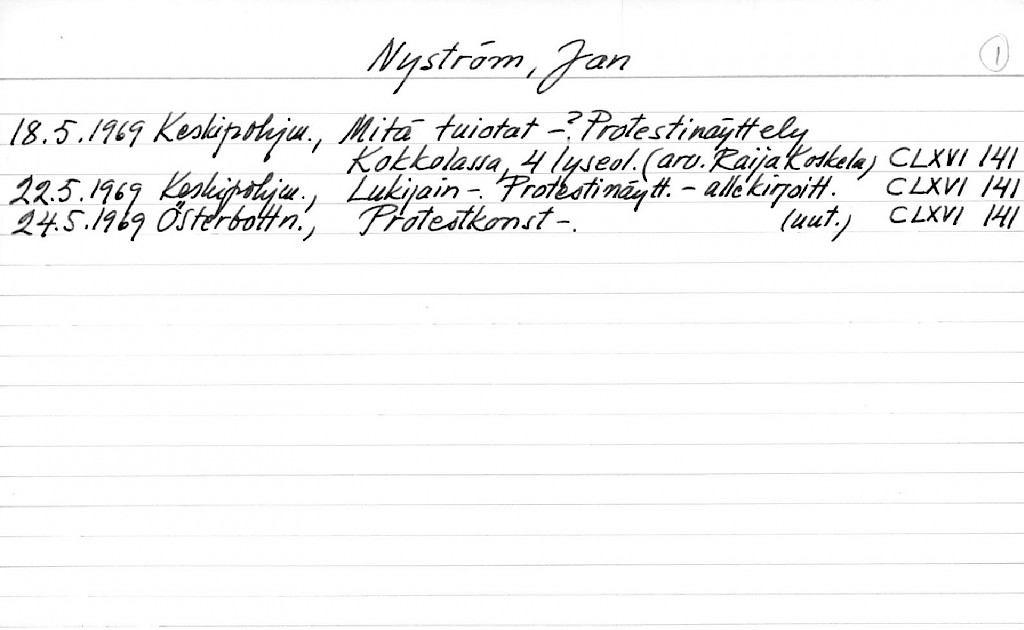 Nyström, Jan 1
18.5.1969 Keskipohjm., Mitä tuiotat -? Protestinäyttely
Kokkolassa, 4 lyseol. (arv. Raija Koskela) CLXVI 141
22.5.1969 Keskipohjm., Lukijain -. Protestinäytt. - allekirjoitt. CLXVI 141
24.5.1969 Österbottn., Protestkonst -. (uut.) CLXVI 141